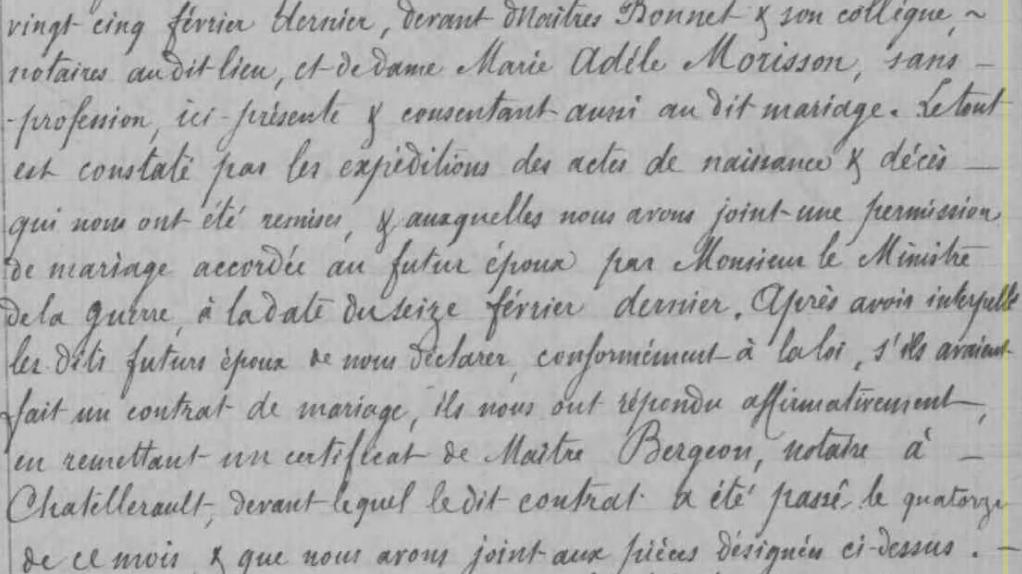 vingt cinq février dernier, devant Maîtres Bonnet & son collègue, ~
notaires au dit lieu, et de dame Marie Adèle Morisson, sans —
profession, ici présente & consentant aussi au dit mariage. Le tout
est constaté par les expéditions des actes de naissance & décès —
qui nous ont été remises, & auxquelles nous avons joint une permission
de mariage accordée au futur époux par Monsieur le Ministre
de la guerre, à la date du seize février dernier. Après avoir interpellé
les dits futurs époux de nous déclarer, conformément à la loi, s'ils avaient
fait un contrat de mariage, ils nous ont répondu affirmativement,
en remettant un certificat de Maître Bergeon, notaire à —
Chatellerault, devant lequel le dit contrat a été passé le quatorze
de ce mois & que nous avons joint aux pièces désignées ci-dessus. —